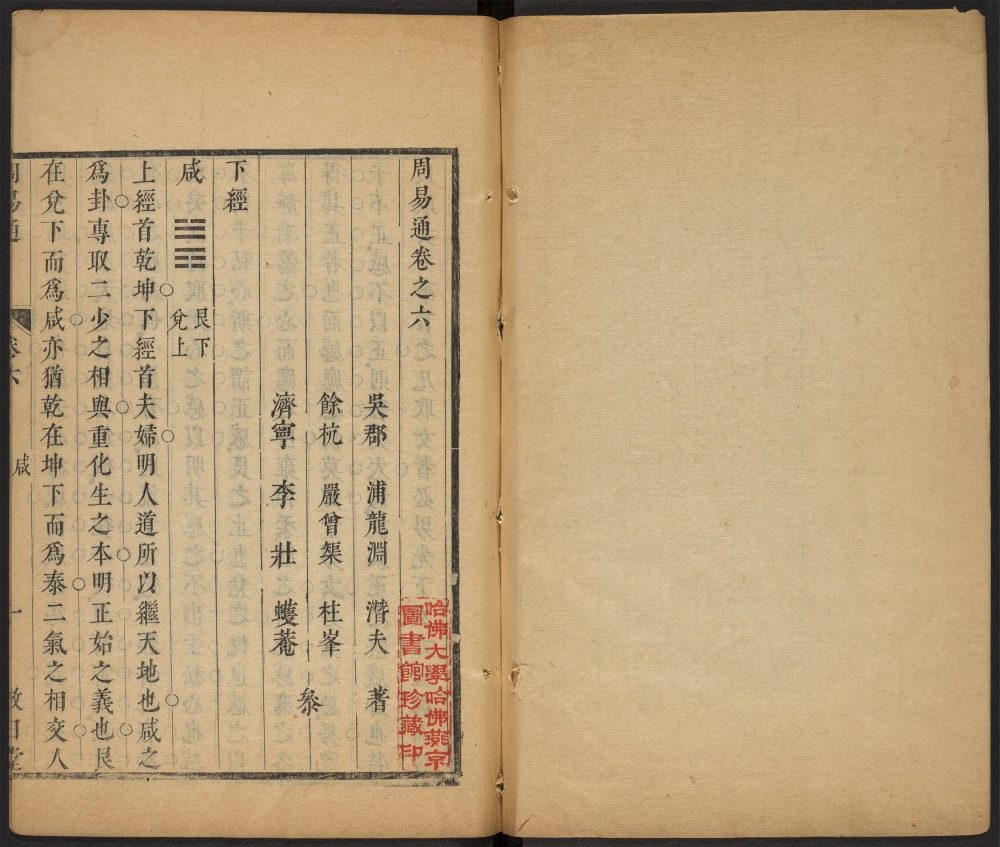 周易通卷之六
吳郡 浦龍淵 潛夫 著
餘杭 嚴曾榘 柱峯
濟寧 李壯 蠖菴 叅
下經
咸 艮下 兌上
上經首乾坤下經首夫婦明人道所以繼天地也咸之
爲卦專取二少之相與重化生之本明正始之義也艮
在兌下而爲咸亦猶乾在坤下而爲泰二氣之相交人
周易通 卷六 咸 一 敬日堂
哈佛大學哈佛燕京
圖書館珍藏印